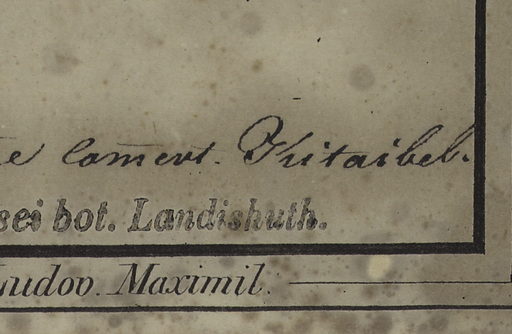 e comerl. Kitaibel.
sei bot. Landishuth.
Ludov. Maximil.